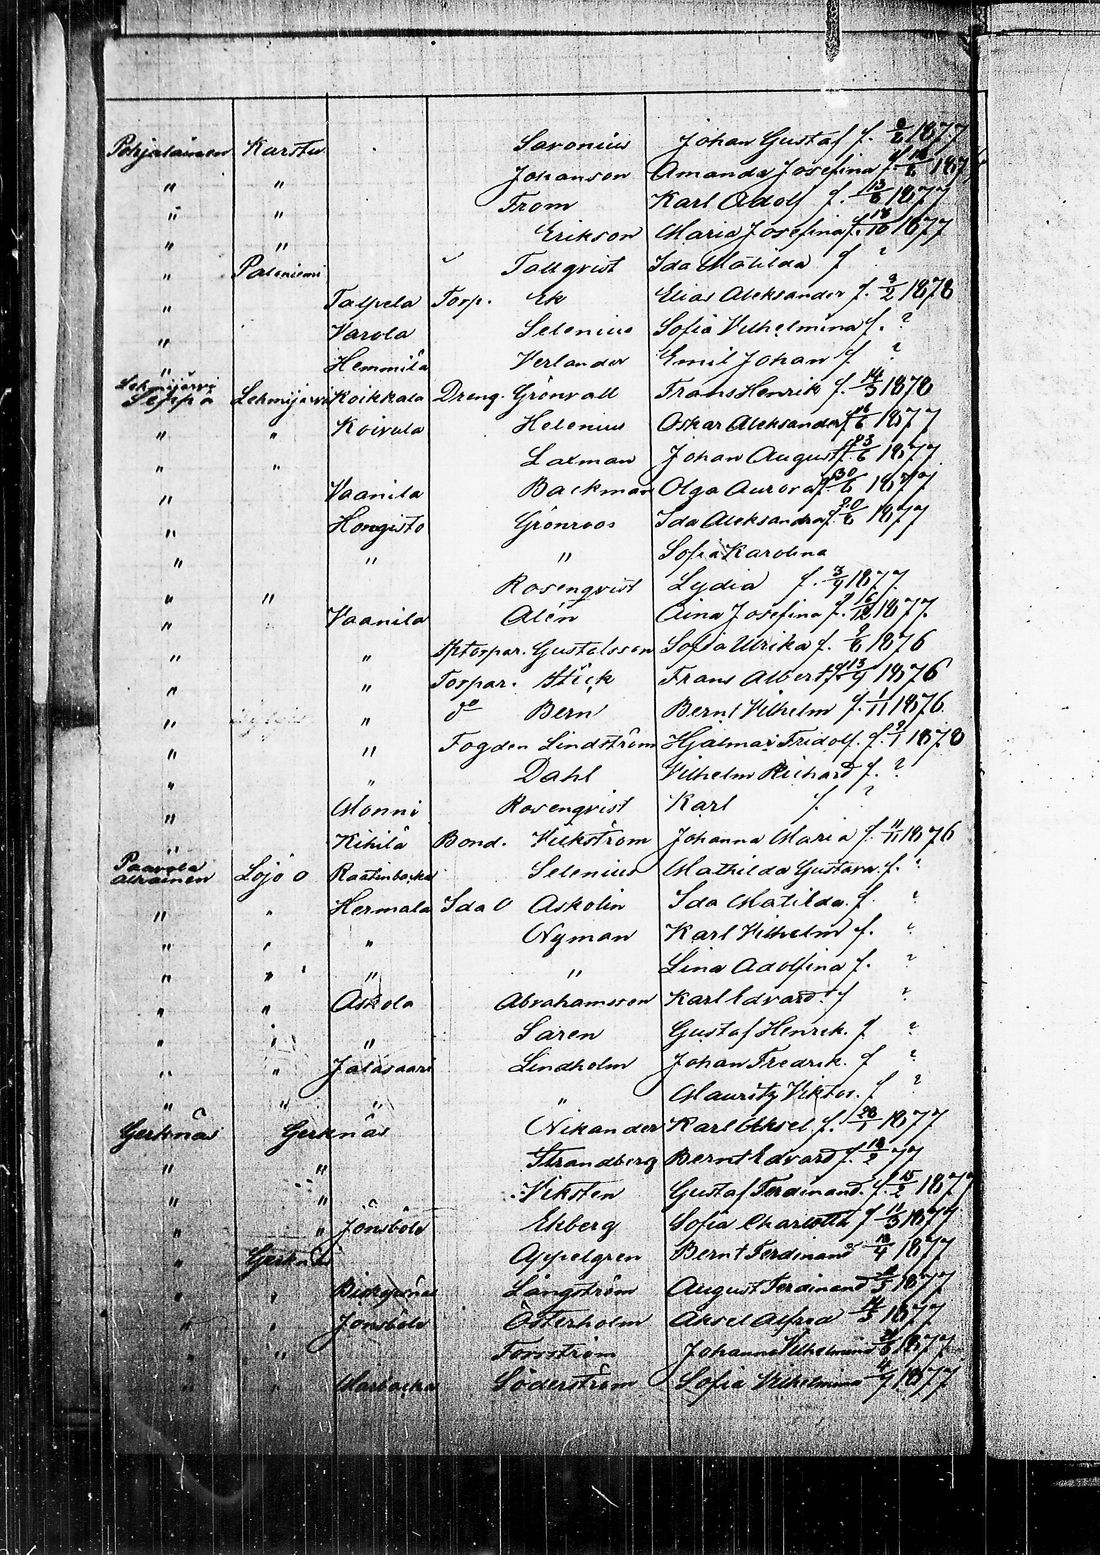 Pohjalainen Karstu Savonius Johan Gustaf f. 2/6 1877
" " Johanson Amanda Josefina f. 18/6 187
" " From Karl Adolf f. 13/6 1877
" " Erikson Maria Josefina f. 18/10 1877
" Paloniemi " Tallqvist Ida Matilda f ?
" Talpela Torp. Ek Elias Aleksander f. 3/2 1878
" Varola Selenius Sofia Vilhelmina f. ?
" Hemmilä Verlander Emil Johan f ?
Lehmijärvi
Seppä Lehmijärvi Koikkala Dreng. Grönvall Frans Henrik f. 14/3 1878
" " Koivula Helenius Oskar Aleksander f. /6 1877
" " Laxman Johan August f. 23/6 1877
" Vaanila Backman Olga Aurora f. 30/6 1877
" Hongisto Grönroos Ida Aleksandra f. 20/6 1877
" " " Sofia Karolina
" " Rosenqvist Lydia f. 3/9 1877
" Vaanila Alén Aina Josefina f. 16/12 1877
" " Sptorpar. Gustafsson Sofia Ulrika f. 9/6 1876
" " Torpar. Stick Frans Albert f. 13/9 1876
" " do Bern Bernt Vilhelm f. 1/11 1876
" " Fogden Lindström Hjalmar Fridolf. f. 9/1 1878
" " Dahl Vilhelm Richard f. ?
" Monni Rosenqvist Karl f. ?
" Kihilä Bond. Vickström Johanna Maria f. 11/11 1876
Paavola
Alhainen Lojo O Raatinbacka Selenius Mathilda Gustava f. ?
" " Hermala Ida O Askolin Ida Matilda f. ?
" " " Nyman Karl Vilhelm f. ?
" " " " Lina Adolfina f. ?
" " Askola Abrahamsson Karl Edvard. f ?
" " " Saren Gustaf Henrik. f ?
" " Jalasaari Lindholm Johan Fredrik. f ?
" " " " Mauritz Viktor. f ?
Gerknäs Gerknäs Nikander Karl Aksel f. 28/1 1877
" " Strandberg Bernt Edvard f. 18/2 77
" " Viksten Gustaf Ferdinand. f. 15/2 1877
" " Jönsböle Ekberg Sofia Charlotta f 11/3 1877
" Gerknäs Appelgren Bernt Ferdinand 18/4 1877
" " Biörgsnäs Långström August Ferdinand /5 1877
" " Jönsböle Österholm Aksel Alfred 14/5 1877
" " " Forsström Johanna Vilhelmina 1877
" " Marbacka Söderström Sofia Vilhelmina 4/9 1877